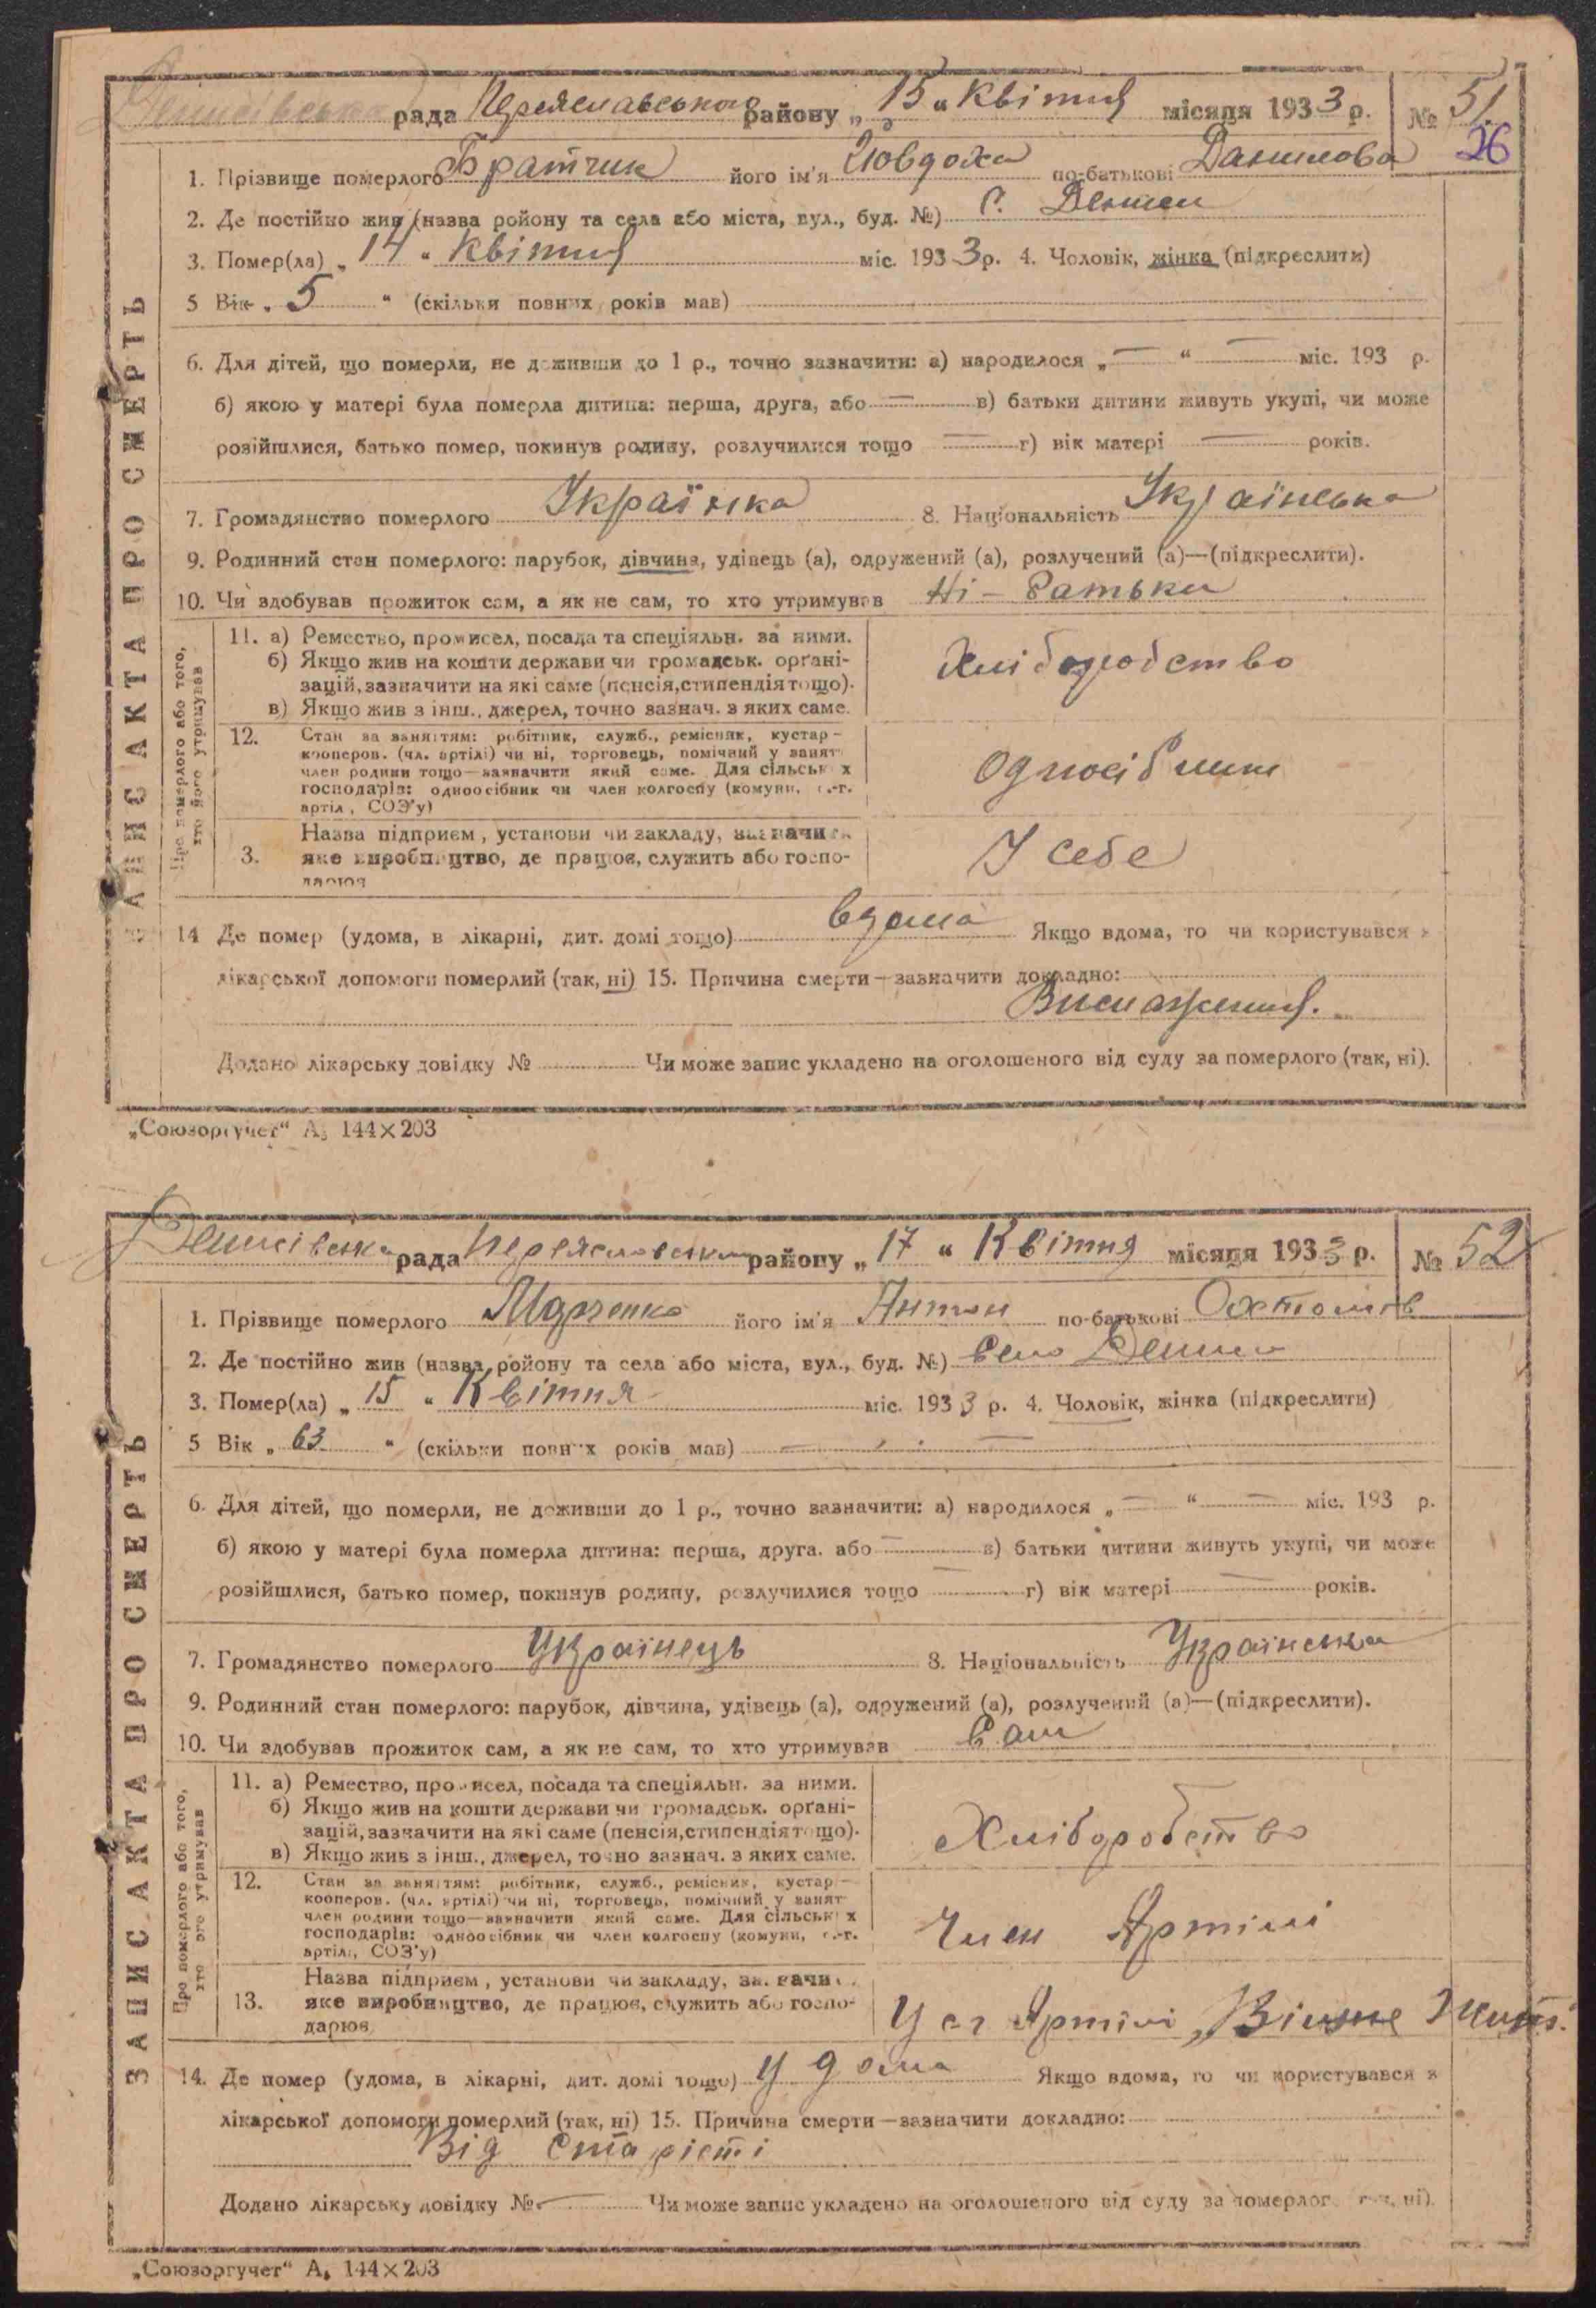 Денисівська рада Переяславського району „ 15 “ Квітня місяця 1933 р. № 51
26
ЗАПИС АКТА ПРО СМЕРТЬ
1. Прізвище померлого Братчик його ім'я Йовдоха по-батькові Данилова
2. Де постійно жив (назва ройону та села або міста, вул., буд. №) С. Дениси
3. Помер(ла) „ 14 “ Квітня міс. 1933 р. 4. Чоловік, жінка (підкреслити)
5 Вік „ 5 “ (скільки повних років мав)
6. Для дітей, що померли, не доживши до 1 р., точно зазначити: а) народилося „ — “ — міс. 193 р.
б) якою у матері була померла дитина: перша, друга, або — в) батьки дитини живуть укупі, чи може
розійшлися, батько помер, покинув родину, розлучилися тощо — г) вік матері — років.
7. Громадянство померлого Українка 8. Національність Українська
9. Родинний стан померлого: парубок, дівчина, удівець (а), одружений (а), розлучений (а)—(підкреслити).
10. Чи здобував прожиток сам, а як не сам, то хто утримував Ні — батьки
Про померлого або того,
хто його утримував
11. а) Ремество, промисел, посада та спеціяльн. за ними.
б) Якщо жив на кошти держави чи громадськ. орґані-
зацій, зазначити на які саме (пенсія, стипендія тощо).
в) Якщо жив з інш., джерел, точно зазнач. з яких саме.
Хліборобство
12. Стан за заняттям: робітник, служб., ремісник, кустар –
кооперов. (чл. артілі) чи ні, торговець, помічний у занят
член родини тощо—зазначити який саме. Для сільських
господарів: одноосібник чи член колгоспу (комуни, с.-г.
артіл, СОЗ'у)
Односібник
3. Назва підприєм, установи чи закладу, зазначити
яке виробництво, де працює, служить або госпо-
дарює
У себе
14 Де помер (удома, в лікарні, дит. домі тощо) вдома Якщо вдома, то чи користувався з
лікарської допомоги померлий (так, ні) 15. Причина смерти—зазначити докладно:
Виснаження.
Додано лікарську довідку № Чи може запис укладено на оголошеного від суду за померлого (так, ні).
„Союзоргучет“ А5 144×203
Денисівська рада Переяславський району „ 17 “ Квітня місяця 1933 р. № 52
ЗАПИС АКТА ПРО СМЕРТЬ
1. Прізвище померлого Марченко його ім'я Антон по-батькові
2. Де постійно жив (назва ройону та села або міста, вул., буд. №) Село Дениси
3. Помер(ла) „ 15 “ Квітня міс. 1933 р. 4. Чоловік, жінка (підкреслити)
5 Вік „ 63 “ (скільки повних років мав) —
6. Для дітей, що померли, не доживши до 1 р., точно зазначити: а) народилося „ — “ — міс. 193 р.
б) якою у матері була померла дитина: перша, друга. або — в) батьки дитини живуть укупі, чи може
розійшлися, батько помер, покинув родину, розлучилися тощо — г) вік матері — років.
7. Громадянство померлого Українець 8. Національність Українська
9. Родинний стан померлого: парубок, дівчина, удівець (а), одружений (а), розлучений (а)—(підкреслити).
10. Чи здобував прожиток сам, а як не сам, то хто утримував Сам
Про померлого або того,
хто його утримував
11. а) Ремество, промисел, посада та спеціяльн. за ними.
б) Якщо жив на кошти держави чи громадськ. орґані-
зацій, зазначити на які саме (пенсія, стипендія тощо).
в) Якщо жив з інш., джерел, точно зазнач. з яких саме.
Хліборобство
12. Стан за заняттям: робітник, служб., ремісник, кустар –
кооперов. (чл. артілі) чи ні, торговець, помічний у занят
член родини тощо—зазначити який саме. Для сільських
господарів: одноосібник чи член колгоспу (комуни, с.-г.
артіл, СОЗ'у)
Член Артілі
13. Назва підприєм, установи чи закладу, зазначи
яке виробництво, де працює, служить або госпо-
дарює
У сг Артілі „Вільне
14. Де помер (удома, в лікарні, дит. домі тощо) У дома Якщо вдома, то чи користувався з
лікарської допомоги померлий (так, ні) 15. Причина смерти—зазначити докладно:
Від Старісті
Додано лікарську довідку № — Чи може запис укладено на оголошеного від суду за померлог (так, ні).
„Союзоргучет“ А5 144×203